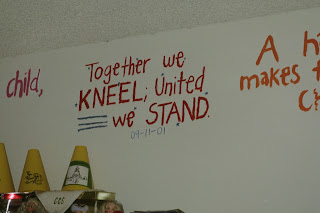 child,
Together we
KNEEL; United
we STAND.
09-11-01
A h
makes t
C
COS